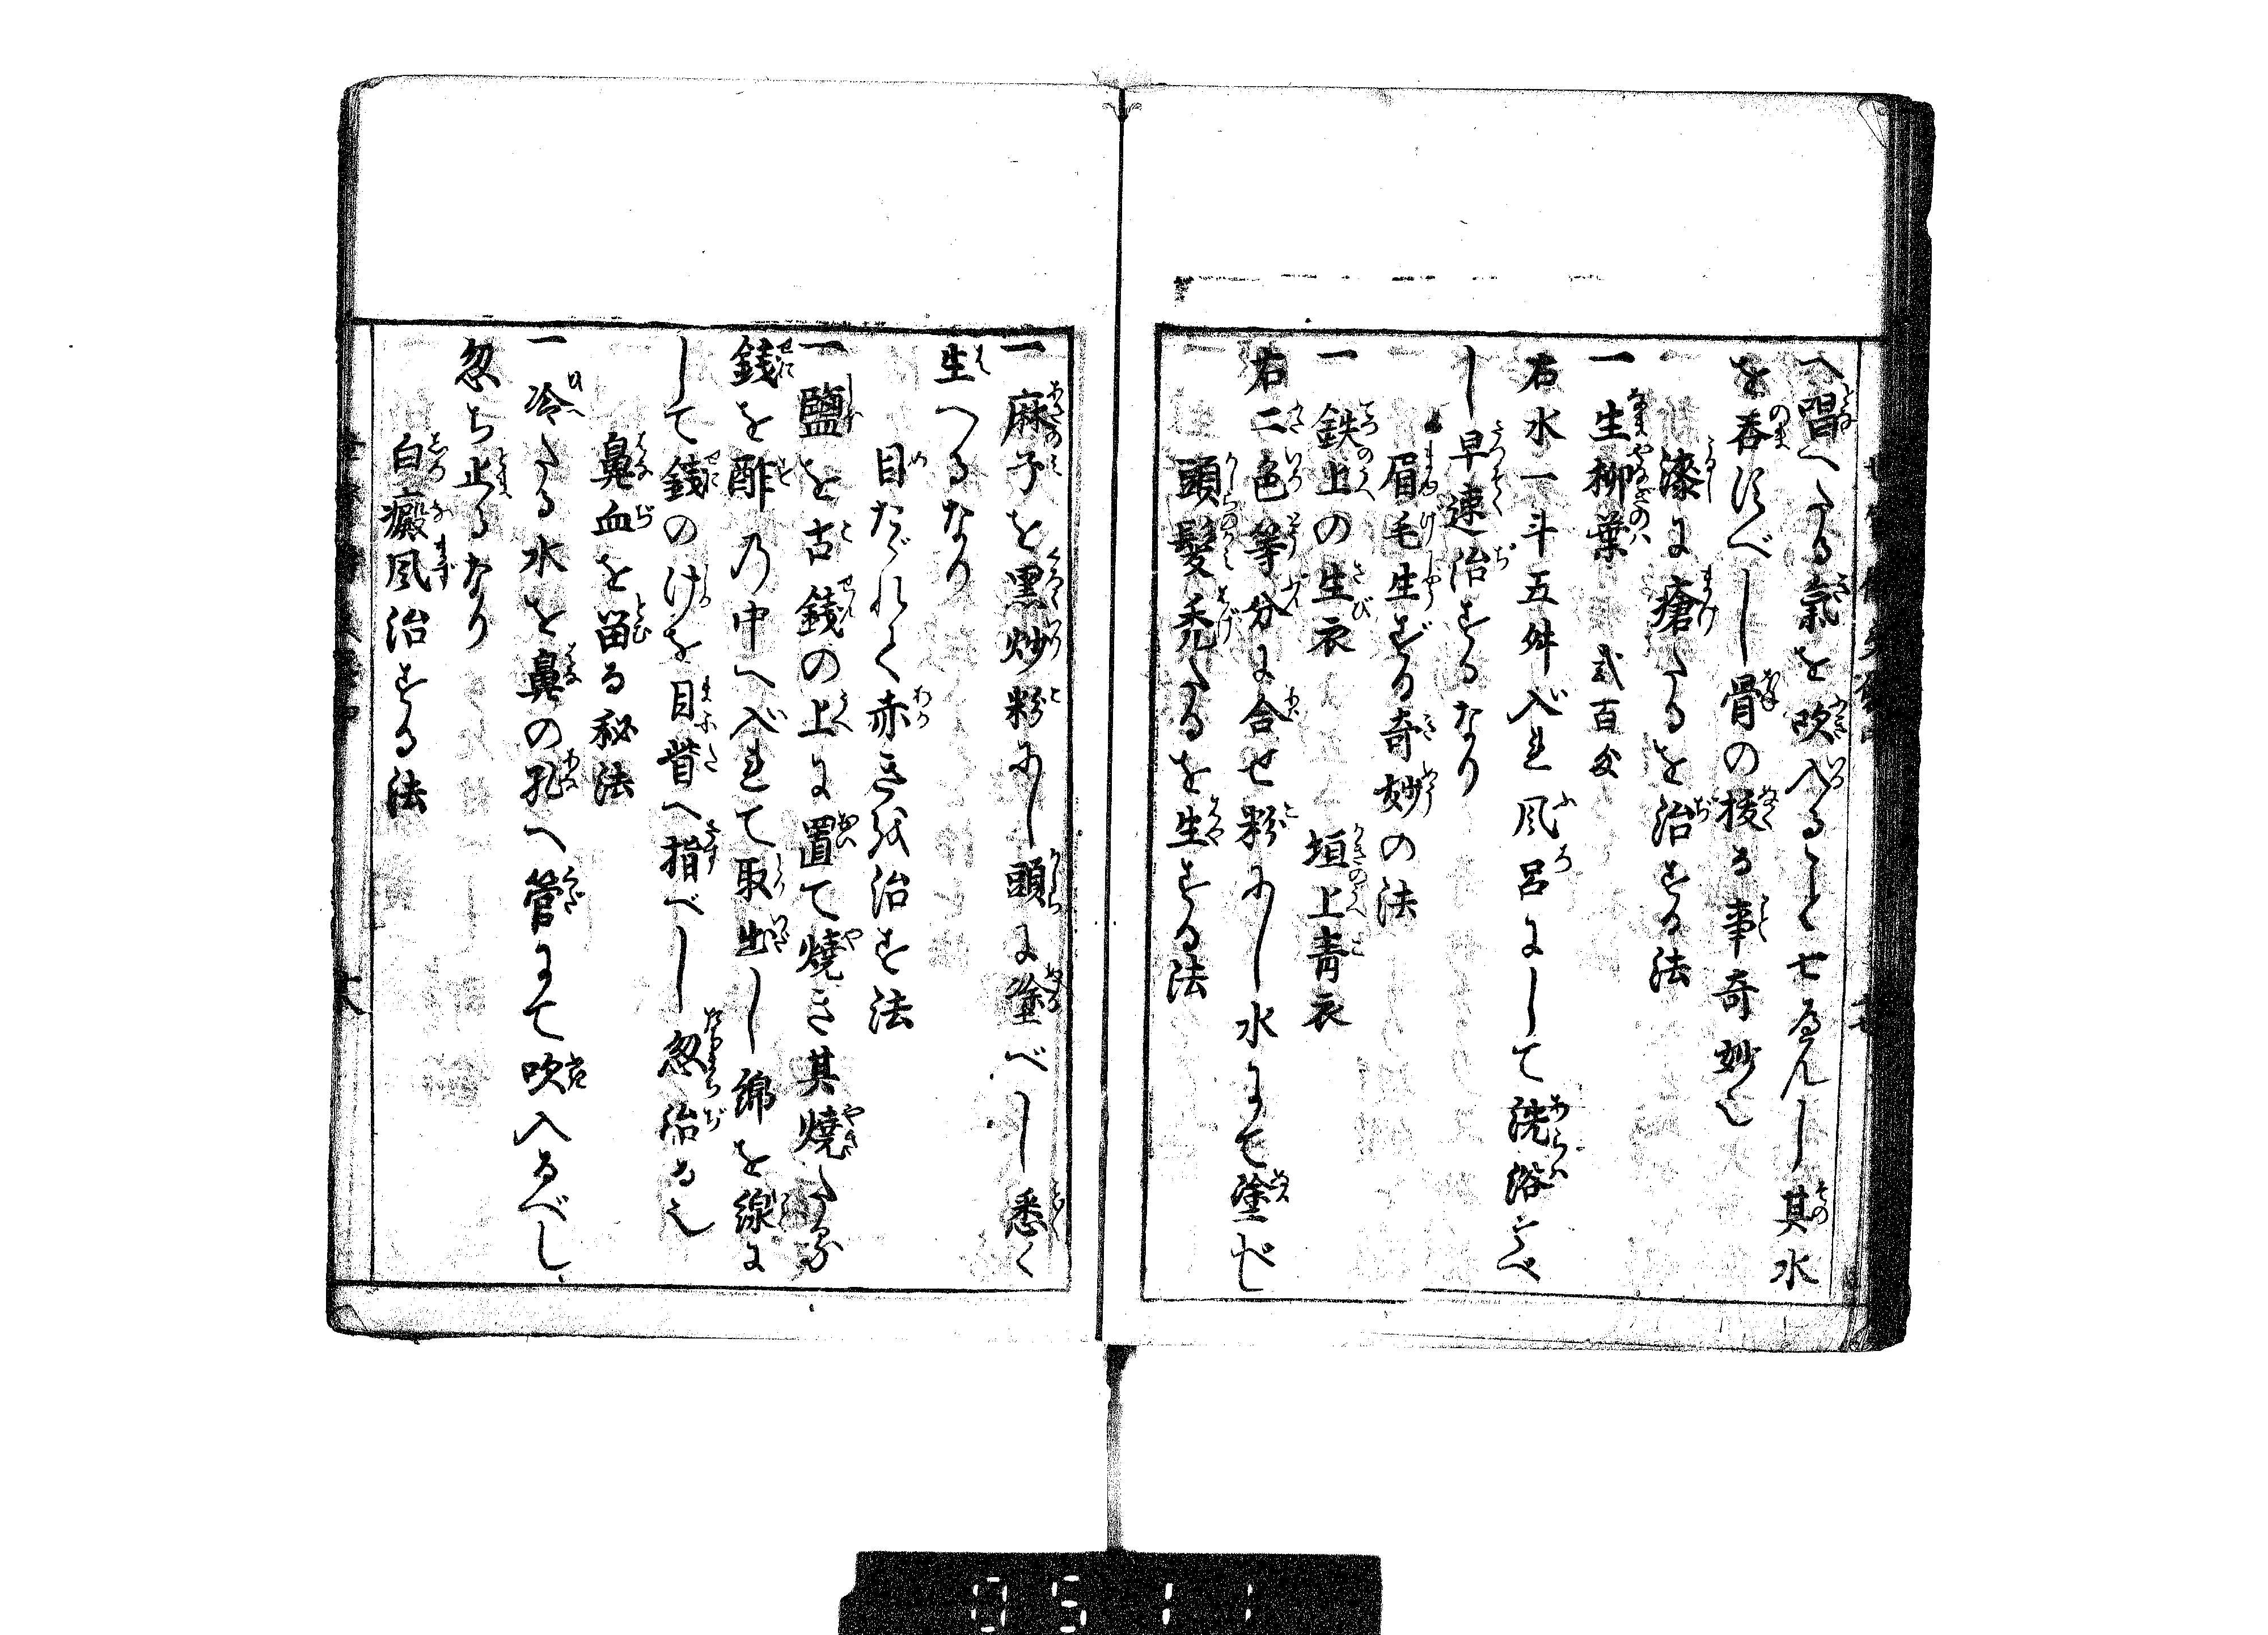 へ唱へたる氣を吹入ること七へんし其水
を呑すべし骨の抜る事奇妙也
漆に瘡たるを治する法
一生柳葉 弐百匁
右水一斗五舛入レ風呂にして洗浴すべ
し早速治するなり
眉毛生ずる奇妙の法
一鉄上の生衣 垣上青衣
右二色等分に合せ粉にし水にて塗べし
頭髮禿たるを生する法
一麻子を黒炒粉にし頭に塗べし悉く
生へるなり
目たゞれく赤きを治す法
一鹽を古銭の上に置て燒き其燒たる
銭を酢の中へ入れて取出し綿を線に
して銭のけを目眥へ指べし忽治る也
鼻血を留る秘法
一冷たる水を鼻の孔へ管にて吹入るべし
忽ち止るなり
白癜風治する法
0511